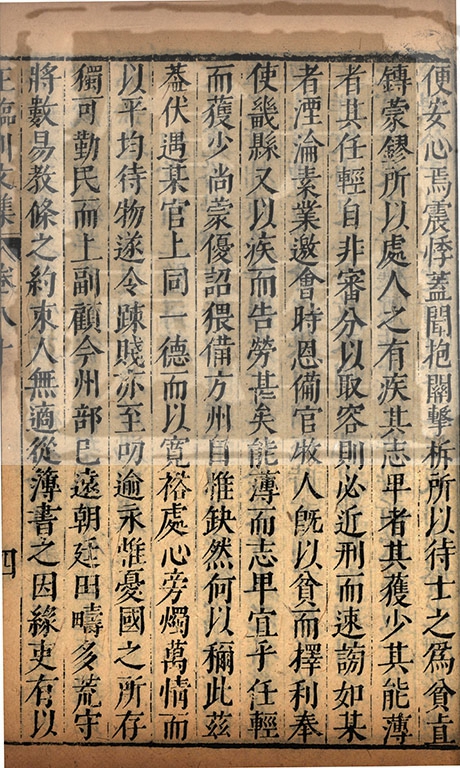 便安心焉震悸蓋聞抱關擊柝所以待士之爲貧直
鏄蒙鏐所以處人之有疾其志卑者其獲少其能薄
者其任輕自非審分以取容則必近刑而速謗如某
者湮淪素業邀會時恩備官牧人旣以貧而擇利奉
使畿縣又以疾而告勞甚矣能薄而志卑宜乎任輕
而獲少尚蒙優詔猥備方州自惟缺然何以稱此茲
葢伏遇某官上同一德而以寛裕處心旁燭萬情而
以平均待物遂令踈賤亦至叨逾永惟憂國之所存
獨可勤民而上副顧今州部巳遠朝廷田疇多荒守
將數易教條之約束人無適從簿書之因緣吏有以
王臨川文集 卷八十 四